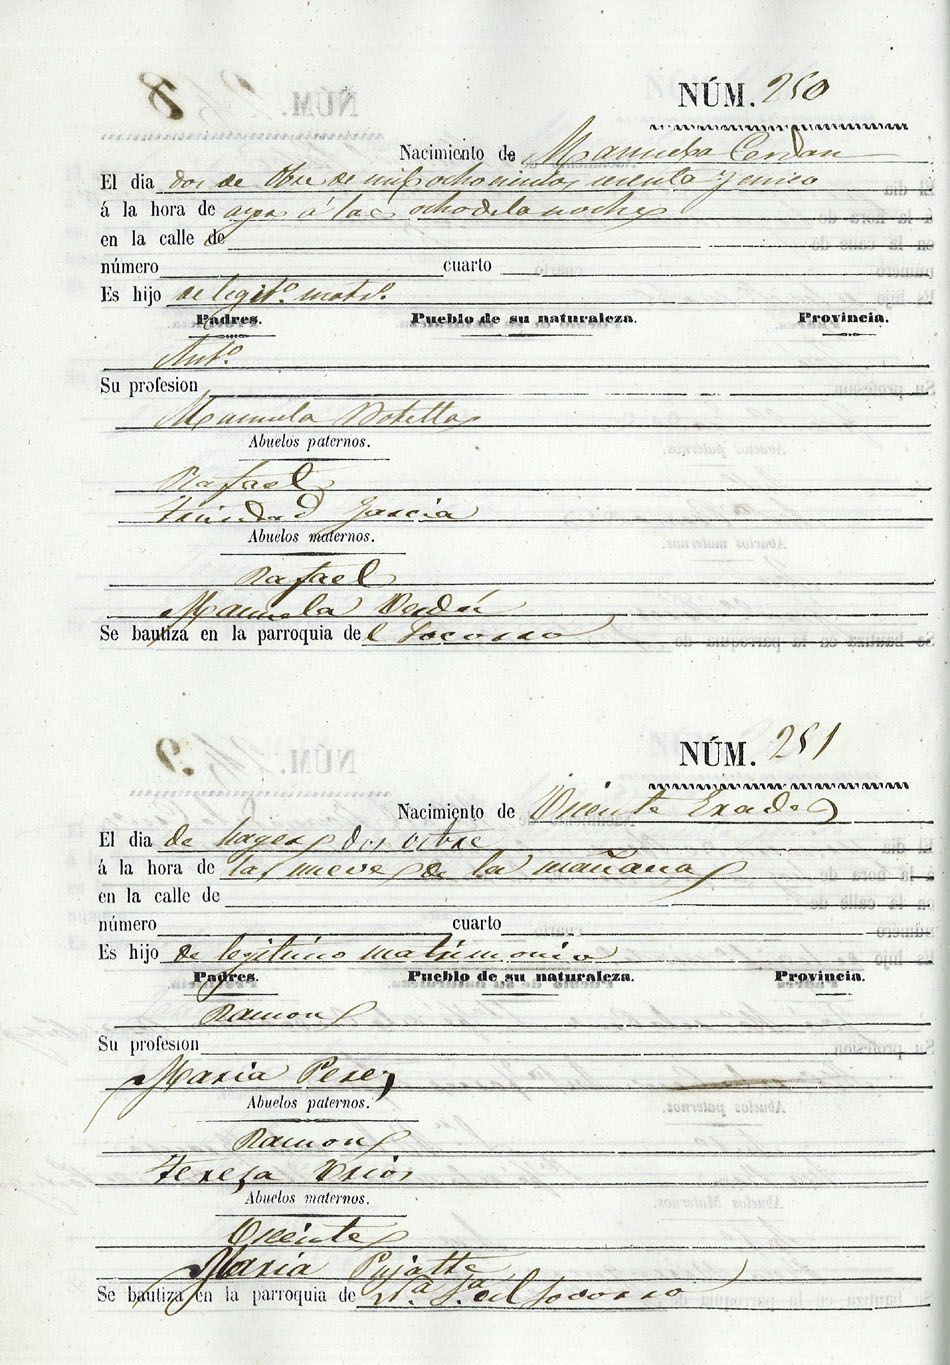 NÚM. 250
Nacimiento de Manuela Cerdan
El dia dos de Obre de mil ochocientos sesenta y cinco
á la hora de ayer á las ocho de la noche
en la calle de
número cuarto
Es hijo de legit.º matr.º
Padres. Pueblo de su naturaleza. Provincia.
Ant.º
Su profesion
Manuela Botella
Abuelos paternos.
Rafael
Trinidad Garcia
Abuelos maternos.
Rafael
Manuela
Se bautiza en la parroquia del Socorro
NÚM. 251
Nacimiento de Vicente
El dia de hayer dos octbre
á la hora de las nueve de la mañana
en la calle de
número cuarto
Es hijo de legitimo matrimonio
Padres. Pueblo de su naturaleza. Provincia.
Ramon
Su profesion
Maria Perez
Abuelos paternos.
Ramon
Teresa
Abuelos maternos.
Vicente
Maria Pujalte
Se bautiza en la parroquia de Nª Sª del Socorro